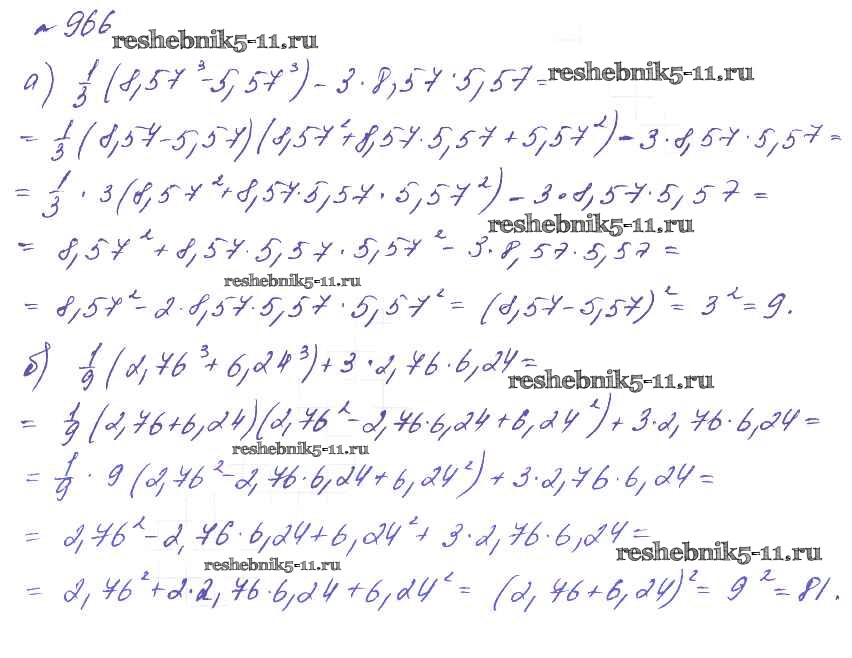 № 966
reshebnik5-11.ru
а) 1/3 (8,57³ - 5,57³) - 3 · 8,57 · 5,57 =
reshebnik5-11.ru
= 1/3 (8,57 - 5,57)(8,57² + 8,57 · 5,57 + 5,57²) - 3 · 8,57 · 5,57 =
= 1/3 · 3 (8,57² + 8,57 · 5,57 · 5,57²) - 3 · 8,57 · 5,57 =
reshebnik5-11.ru
= 8,57² + 8,57 · 5,57 · 5,57² - 3 · 8,57 · 5,57 =
reshebnik5-11.ru
= 8,57² - 2 · 8,57 · 5,57 · 5,57² = (8,57 - 5,57)² = 3² = 9.
б) 1/9 (2,76³ + 6,24³) + 3 · 2,76 · 6,24 =
reshebnik5-11.ru
= 1/9 (2,76 + 6,24)(2,76² - 2,76 · 6,24 + 6,24²) + 3 · 2,76 · 6,24 =
reshebnik5-11.ru
= 1/9 · 9 (2,76² - 2,76 · 6,24 + 6,24²) + 3 · 2,76 · 6,24 =
= 2,76² - 2,76 · 6,24 + 6,24² + 3 · 2,76 · 6,24 =
reshebnik5-11.ru
reshebnik5-11.ru
= 2,76² + 2 · 2,76 · 6,24 + 6,24² = (2,76 + 6,24)² = 9² = 81.